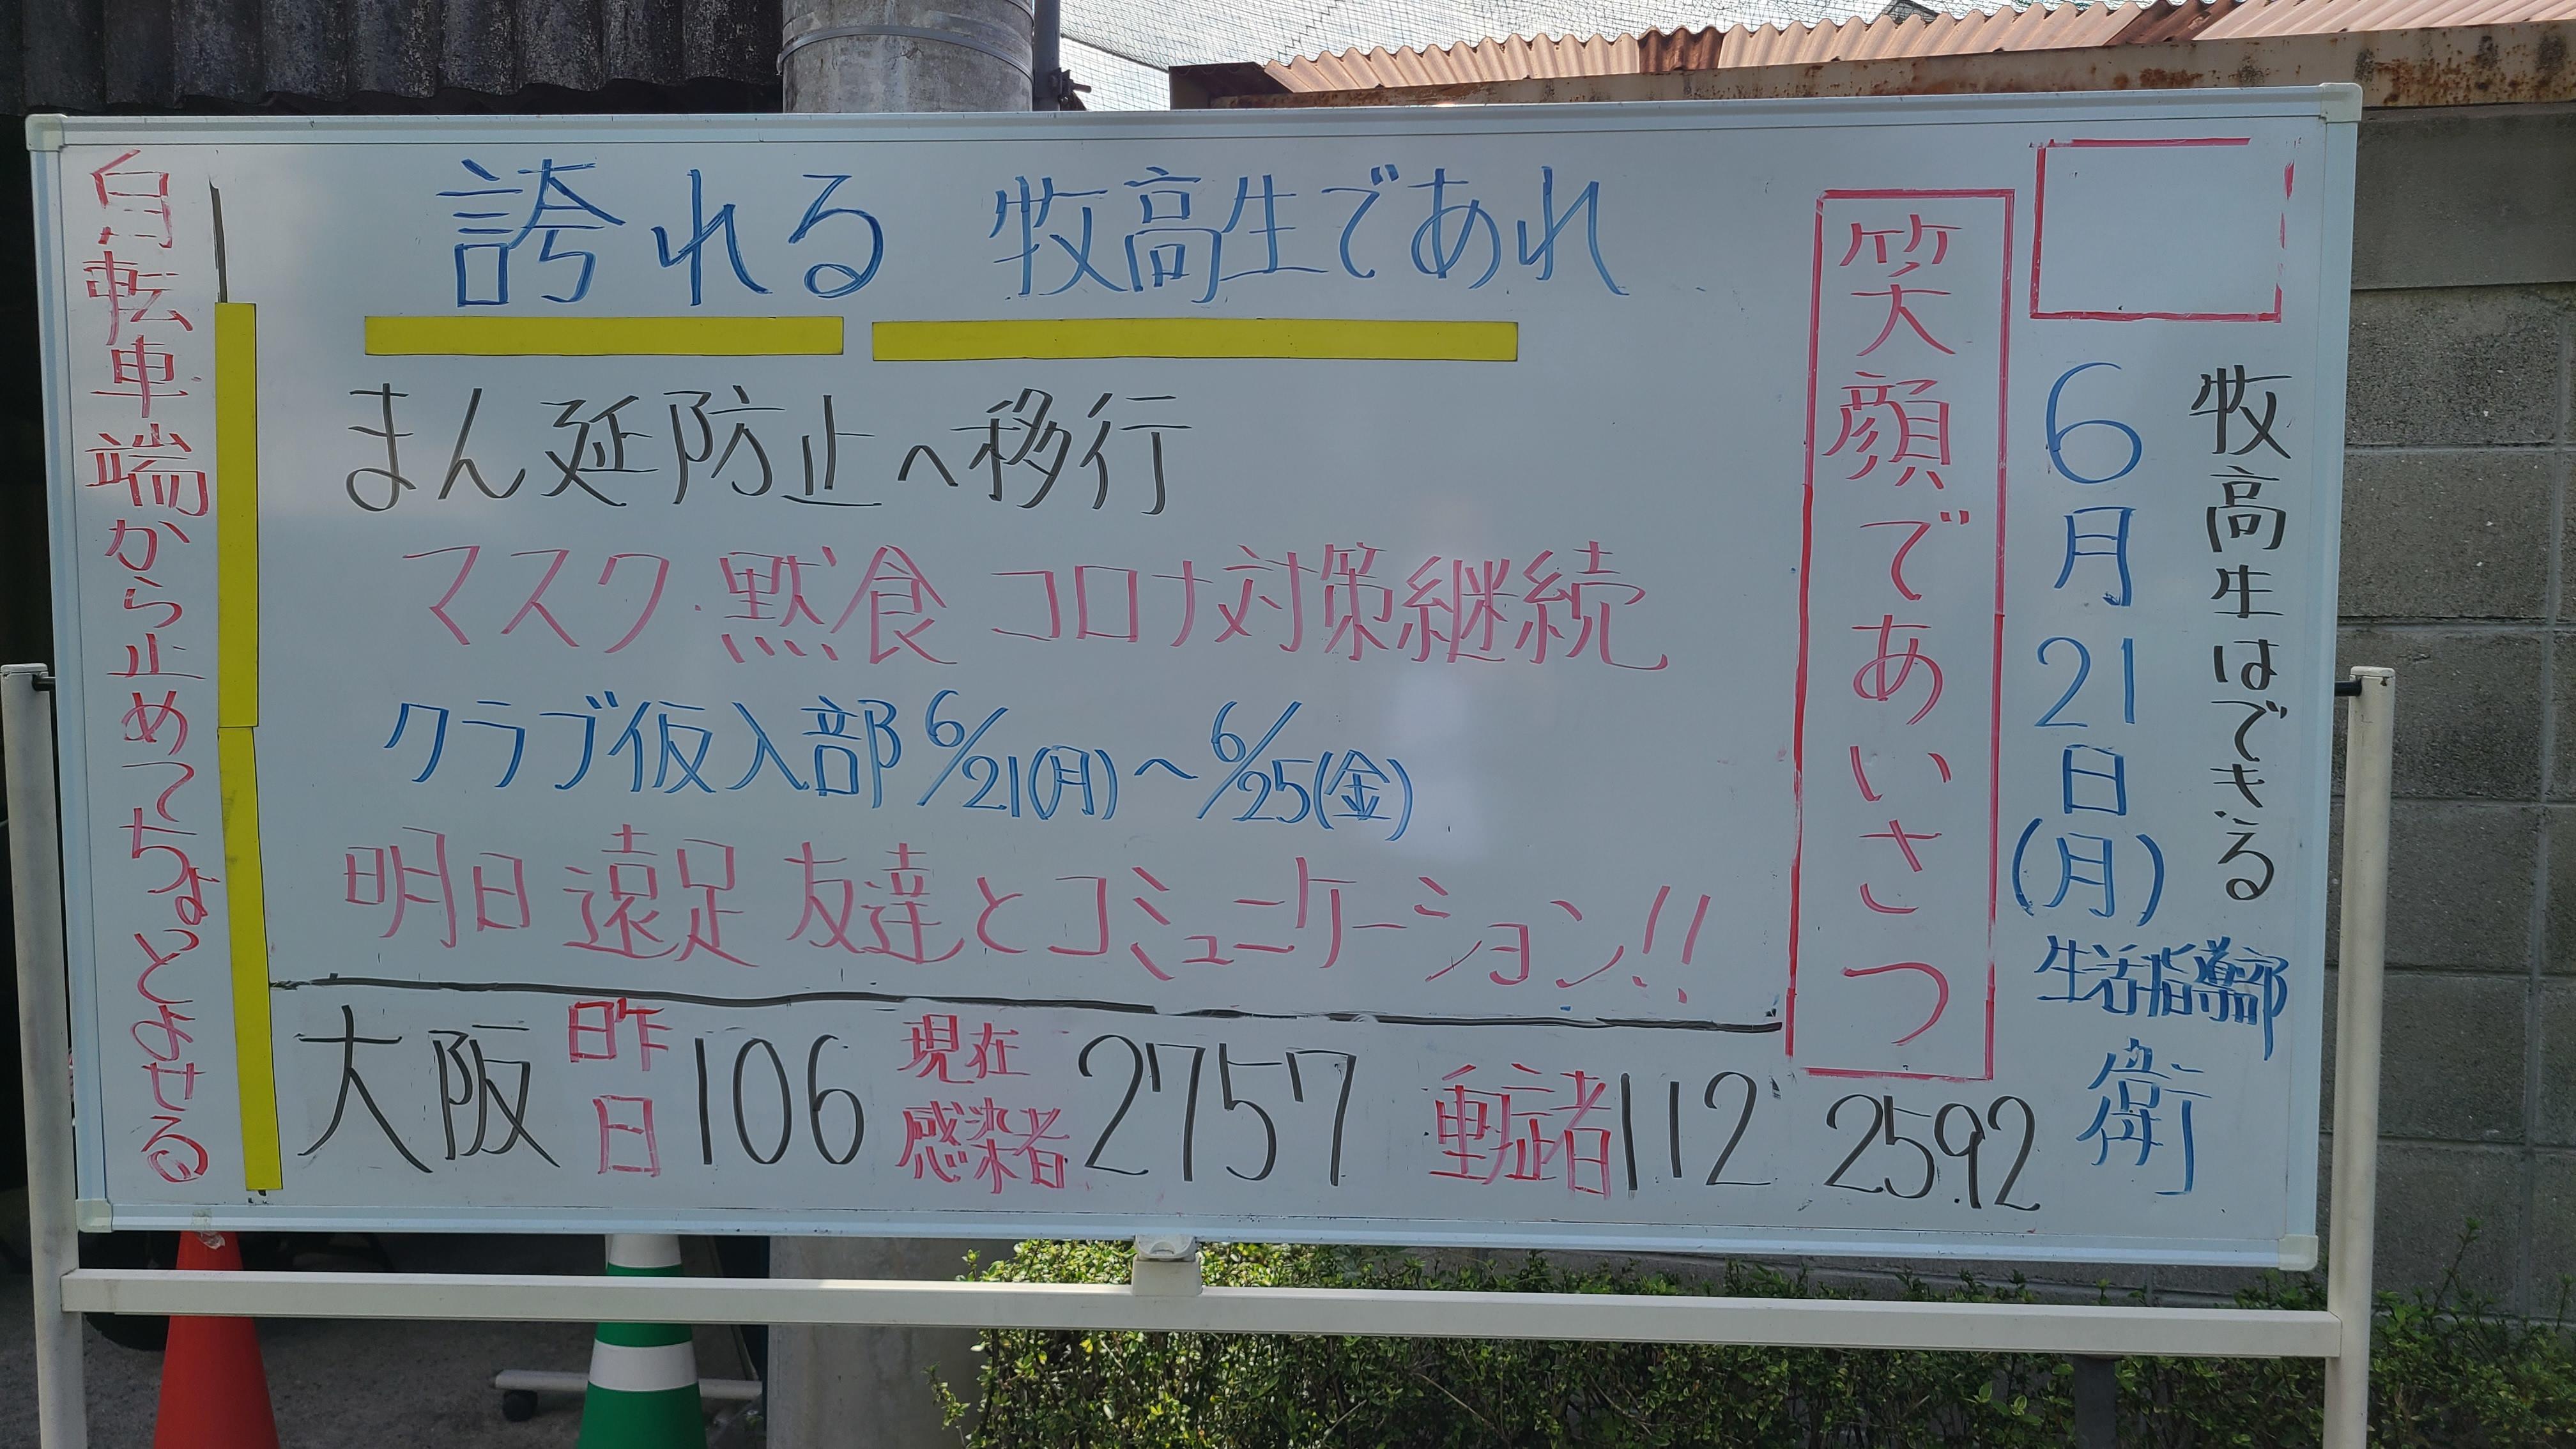 牧高生はできる
6月21日(月)生活指導部 衛
笑顔であいさつ
誇れる 牧高生であれ
まん延防止へ移行
マスク・黙食 コロナ対策継続
クラブ仮入部 6/21(月)～6/25(金)
明日 遠足 友達とコミュニケーション!!
大阪 昨日 106 現在感染者 2757 重症者 112 2592
自転車 端から止めてちょっとよせる